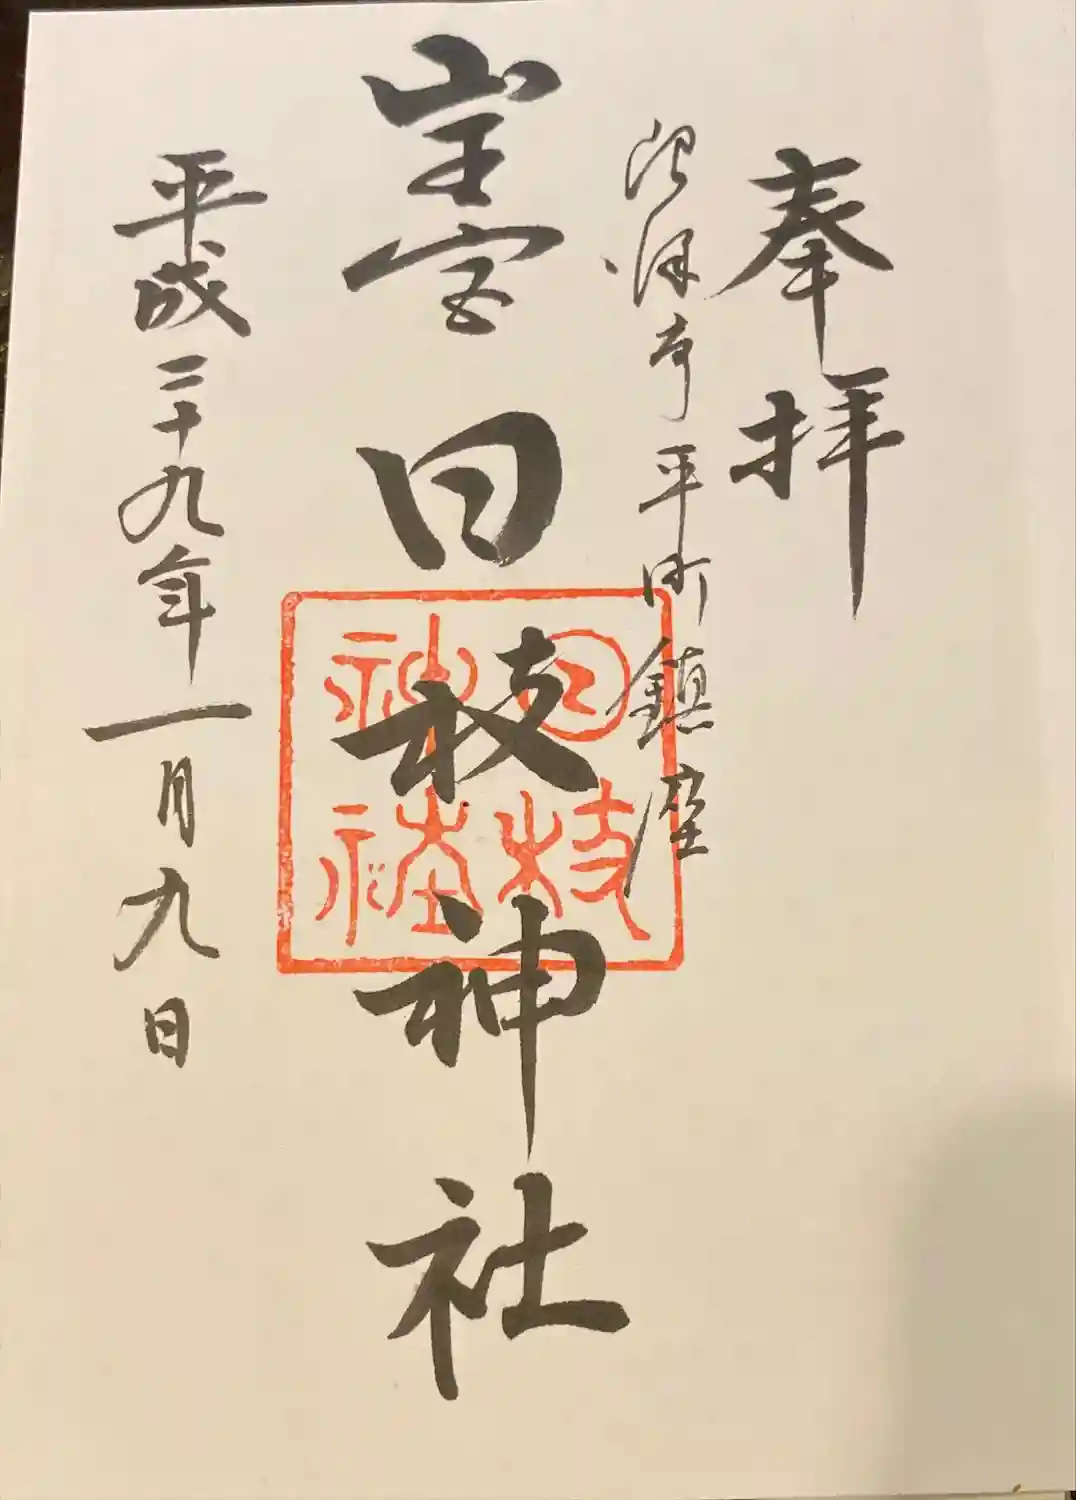 奉拝
沼津市平町鎮座
山王宮日枝神社
日枝
神社
平成二十九年一月九日